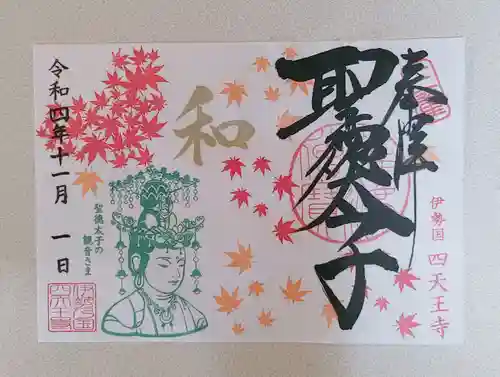 奉拝
聖徳太子
伊勢国 四天王寺
和
聖徳太子の
観音さま
令和四年十一月 一日
伊勢之国
四天王寺